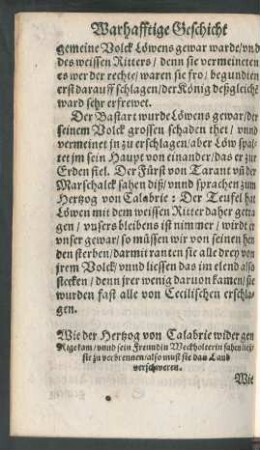 Warhafftige Geschicht
gemeine Volck Löwens gewar warde/vnd
des weissen Ritters / denn sie vermeineten
es wer der rechte/ waren sie fro/ begundten
erst darauff schlagen/der König deßgleicht
ward sehr erfrewet.
Der Bastart wurde Löwens gewar/der
seinem Volck grossen schaden thet / vnnd
vermeinet jn zu erschlagen/aber Löw spal-
tet jm sein Haupt von einander/das er zur
Erden fiel. Der Fürst von Tarant vñ der
Marschalck sahen diß/ vnnd sprachen zum
Hertzog von Calabrie: Der Teufel hat
Löwen mit dem weissen Ritter daher getra
gen / vnsers bleibens ist nimmer / wirdt er
vnser gewar/ so müssen wir von seinen hen
den sterben/damit ranten sie alle drey von
jrem Volck/ vnnd liessen das im elend also
stecken/ denn jrer wenig daruon kamen/sie
wurden fast alle von Cecilischen erschla-
gen.
Wie der Hertzog von Calabrie wider gen
Rige kam/vnnd sein Freundin Weckholterin
sie zu verbrennen/also must sie das Land
verschweren.
Wie